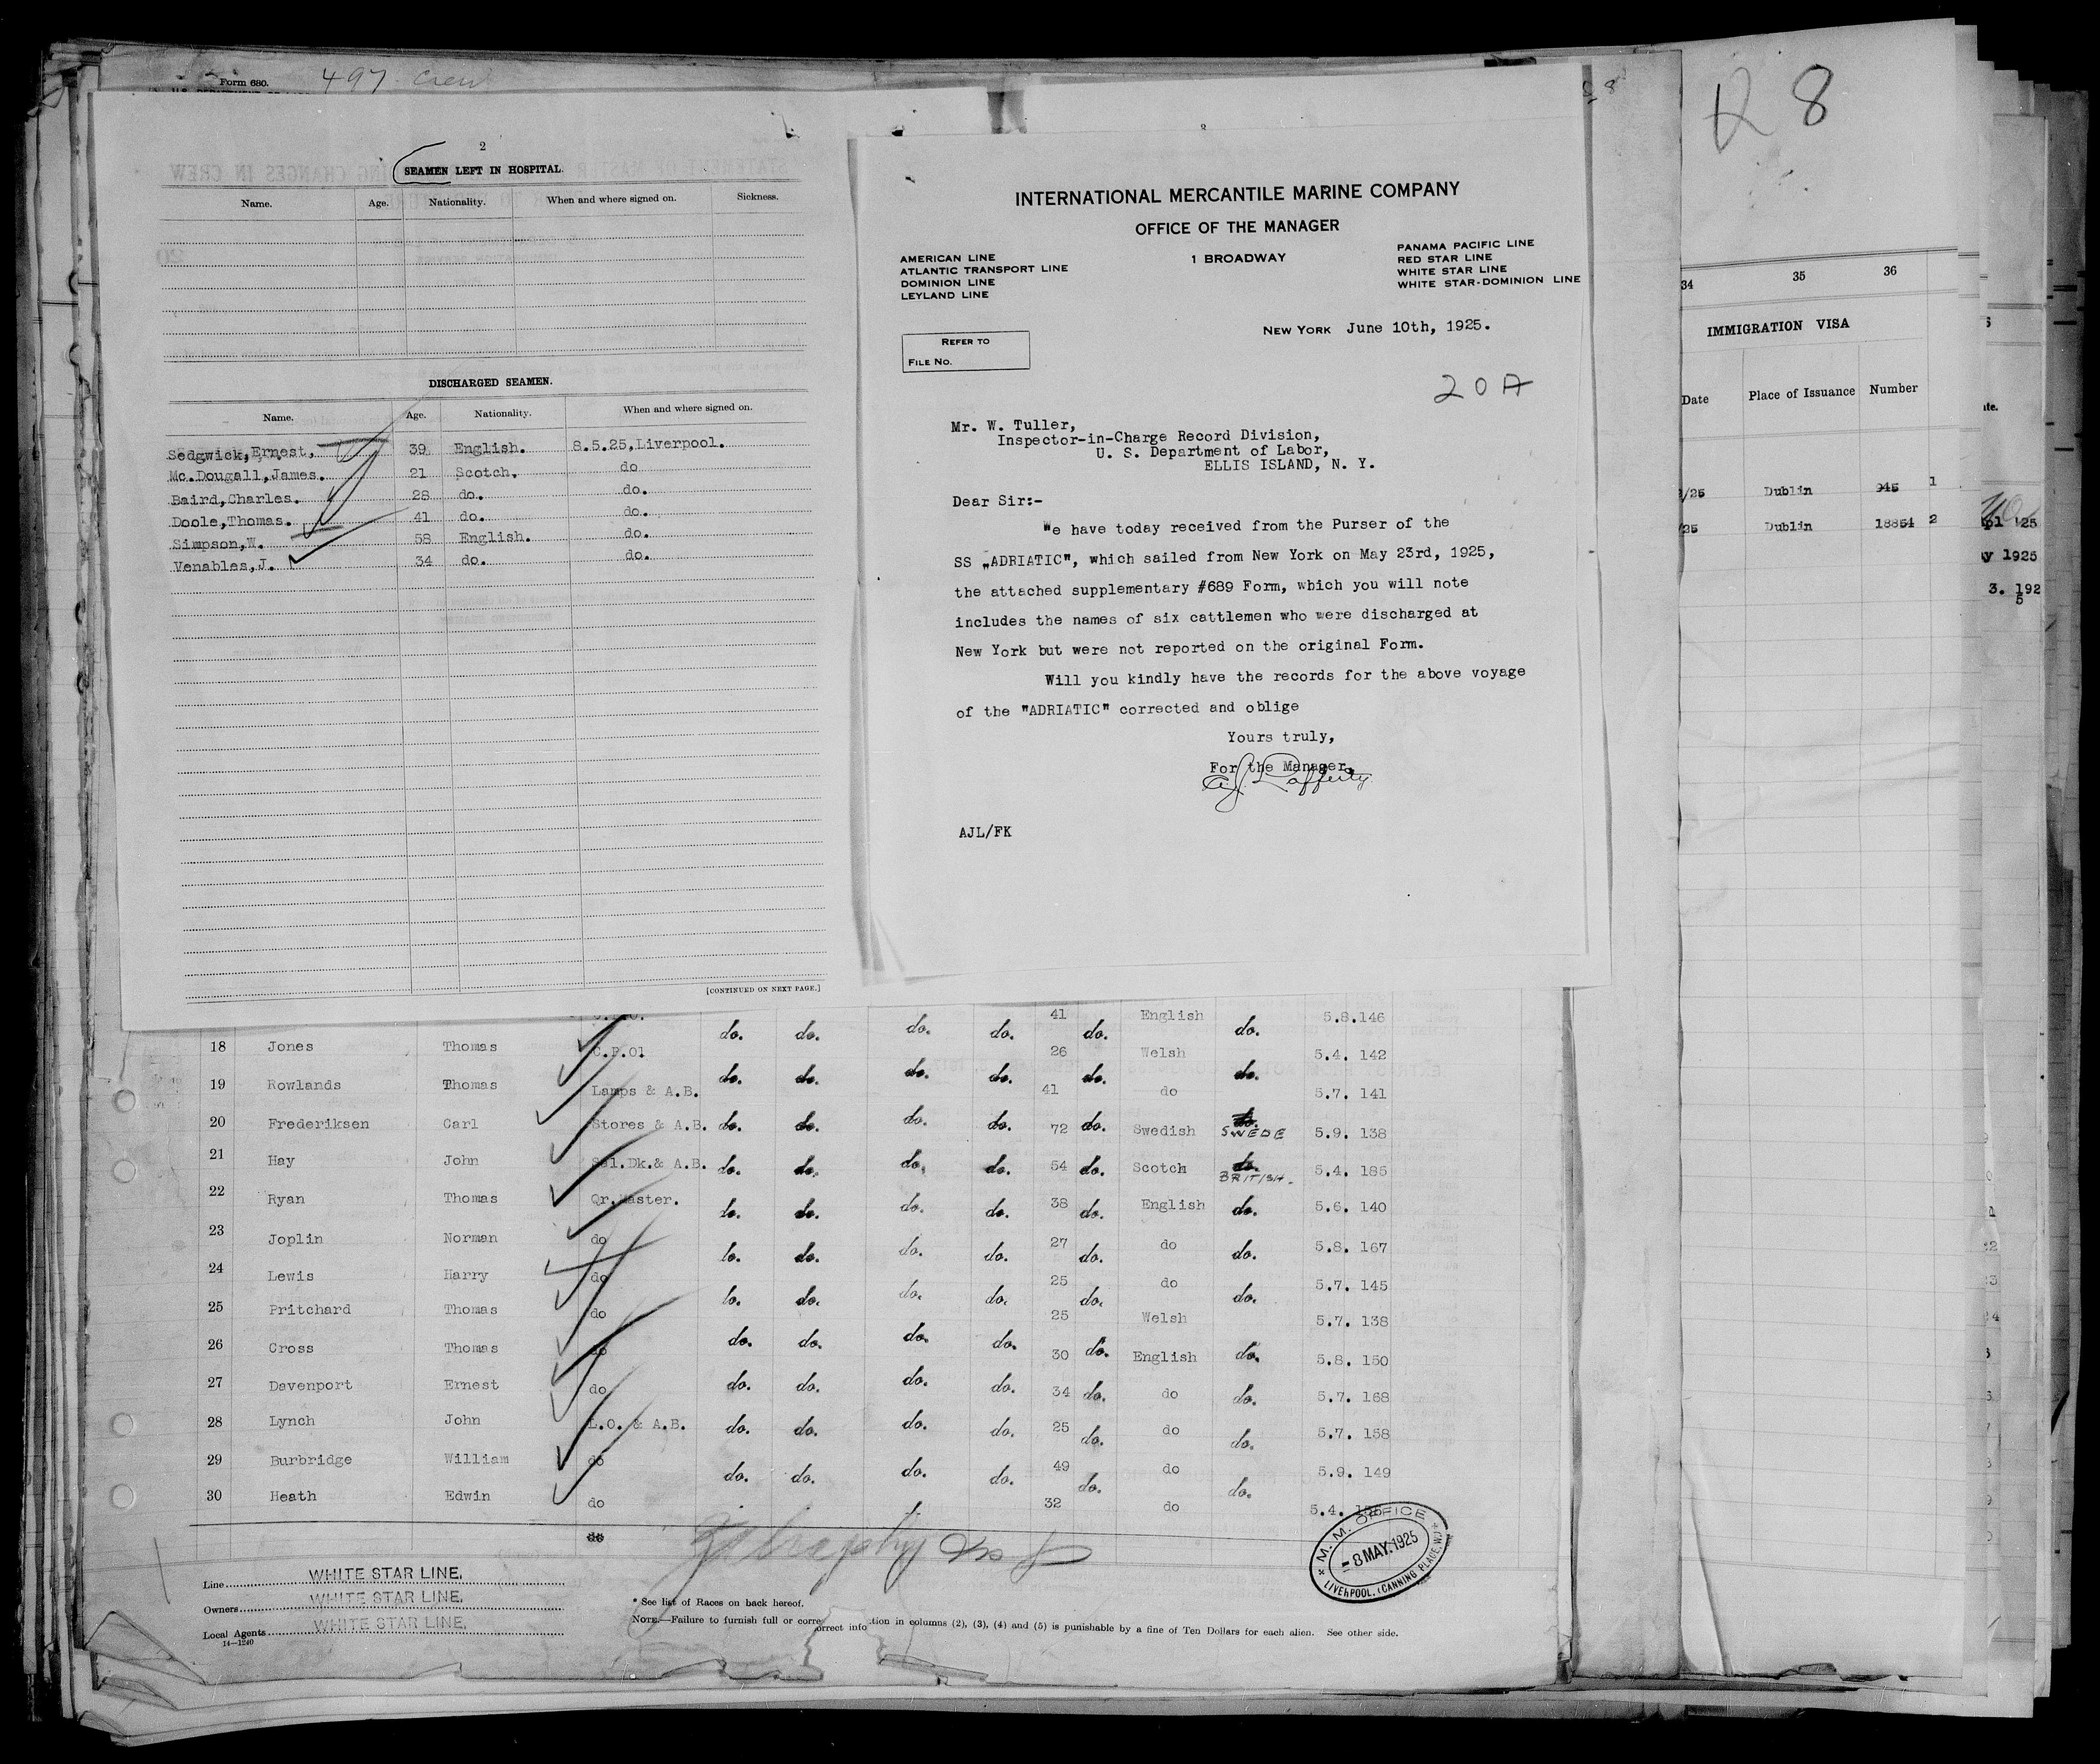 Form 680.
497 Crew
2
SEAMEN LEFT IN HOSPITAL.
Name. Age. Nationality. When and where signed on. Sickness.
DISCHARGED SEAMEN.
Name. Age. Nationality. When and where signed on.
Sedgwick,Ernest. 39 English. 8.5.25,Liverpool.
Mc.Dougall,James. 21 Scotch. do
Baird,Charles. 28 do. do.
Doole,Thomas. 41 do. do.
Simpson,W. 58 English. do.
Venables,J. 34 do. do.
[CONTINUED ON NEXT PAGE.]
INTERNATIONAL MERCANTILE MARINE COMPANY
OFFICE OF THE MANAGER
1 BROADWAY
AMERICAN LINE
ATLANTIC TRANSPORT LINE
DOMINION LINE
LEYLAND LINE
PANAMA PACIFIC LINE
RED STAR LINE
WHITE STAR LINE
WHITE STAR-DOMINION LINE
NEW YORK June 10th, 1925.
REFER TO
FILE NO.
20 A
Mr. W. Tuller,
Inspector-in-Charge Record Division,
U. S. Department of Labor,
ELLIS ISLAND, N. Y.
Dear Sir:-
We have today received from the Purser of the
SS „ADRIATIC", which sailed from New York on May 23rd, 1925,
the attached supplementary #689 Form, which you will note
includes the names of six cattlemen who were discharged at
New York but were not reported on the original Form.
Will you kindly have the records for the above voyage
of the "ADRIATIC" corrected and oblige
Yours truly,
For the Manager.
A.J. Lafferty
AJL/FK
41 English do. 5.8.146
18 Jones Thomas do. do. do. do. 26 do. Welsh 5.4. 142
19 Rowlands Thomas Lamps & A.B. do. do. do. do. 41 do. do do. 5.7. 141
20 Frederiksen Carl Stores & A.B. do. do. do. do. 72 do. Swedish do. SWEDE 5.9. 138
21 Hay John & A.B. do. do. do. do. 54 do. Scotch do. BRITISH. 5.4. 185
22 Ryan Thomas Qr.Master. do. do. do. do. 38 do. English do. 5.6. 140
23 Joplin Norman do do. do. do. do. 27 do. do do. 5.8. 167
24 Lewis Harry do do. do. do. do. 25 do. do do. 5.7. 145
25 Pritchard Thomas do 25 Welsh 5.7. 138
26 Cross Thomas do do. do. do. do. 30 do. English do. 5.8. 150
27 Davenport Ernest do do. do. do. do. 34 do. do do. 5.7. 168
28 Lynch John L.O. & A.B. do. do. do. do. 25 do. do do. 5.7. 158
29 Burbridge William do do. do. do. do. 49 do. do do. 5.9. 149
30 Heath Edwin do 32 do 5.4.
Line WHITE STAR LINE.
Owners WHITE STAR LINE.
Local Agents WHITE STAR LINE.
14—1240
* See list of Races on back hereof.
NOTE.—Failure to furnish full or correct information in columns (2), (3), (4) and (5) is punishable by a fine of Ten Dollars for each alien. See other side.
M.M. OFFICE
-8 MAY.1925
LIVERPOOL. (CANNING PLACE, W.)
R 8
34 35 36
IMMIGRATION VISA
Date Place of Issuance Number
/25 Dublin 945 1
/25 Dublin 18854 2
'25
1925
3. 192
5